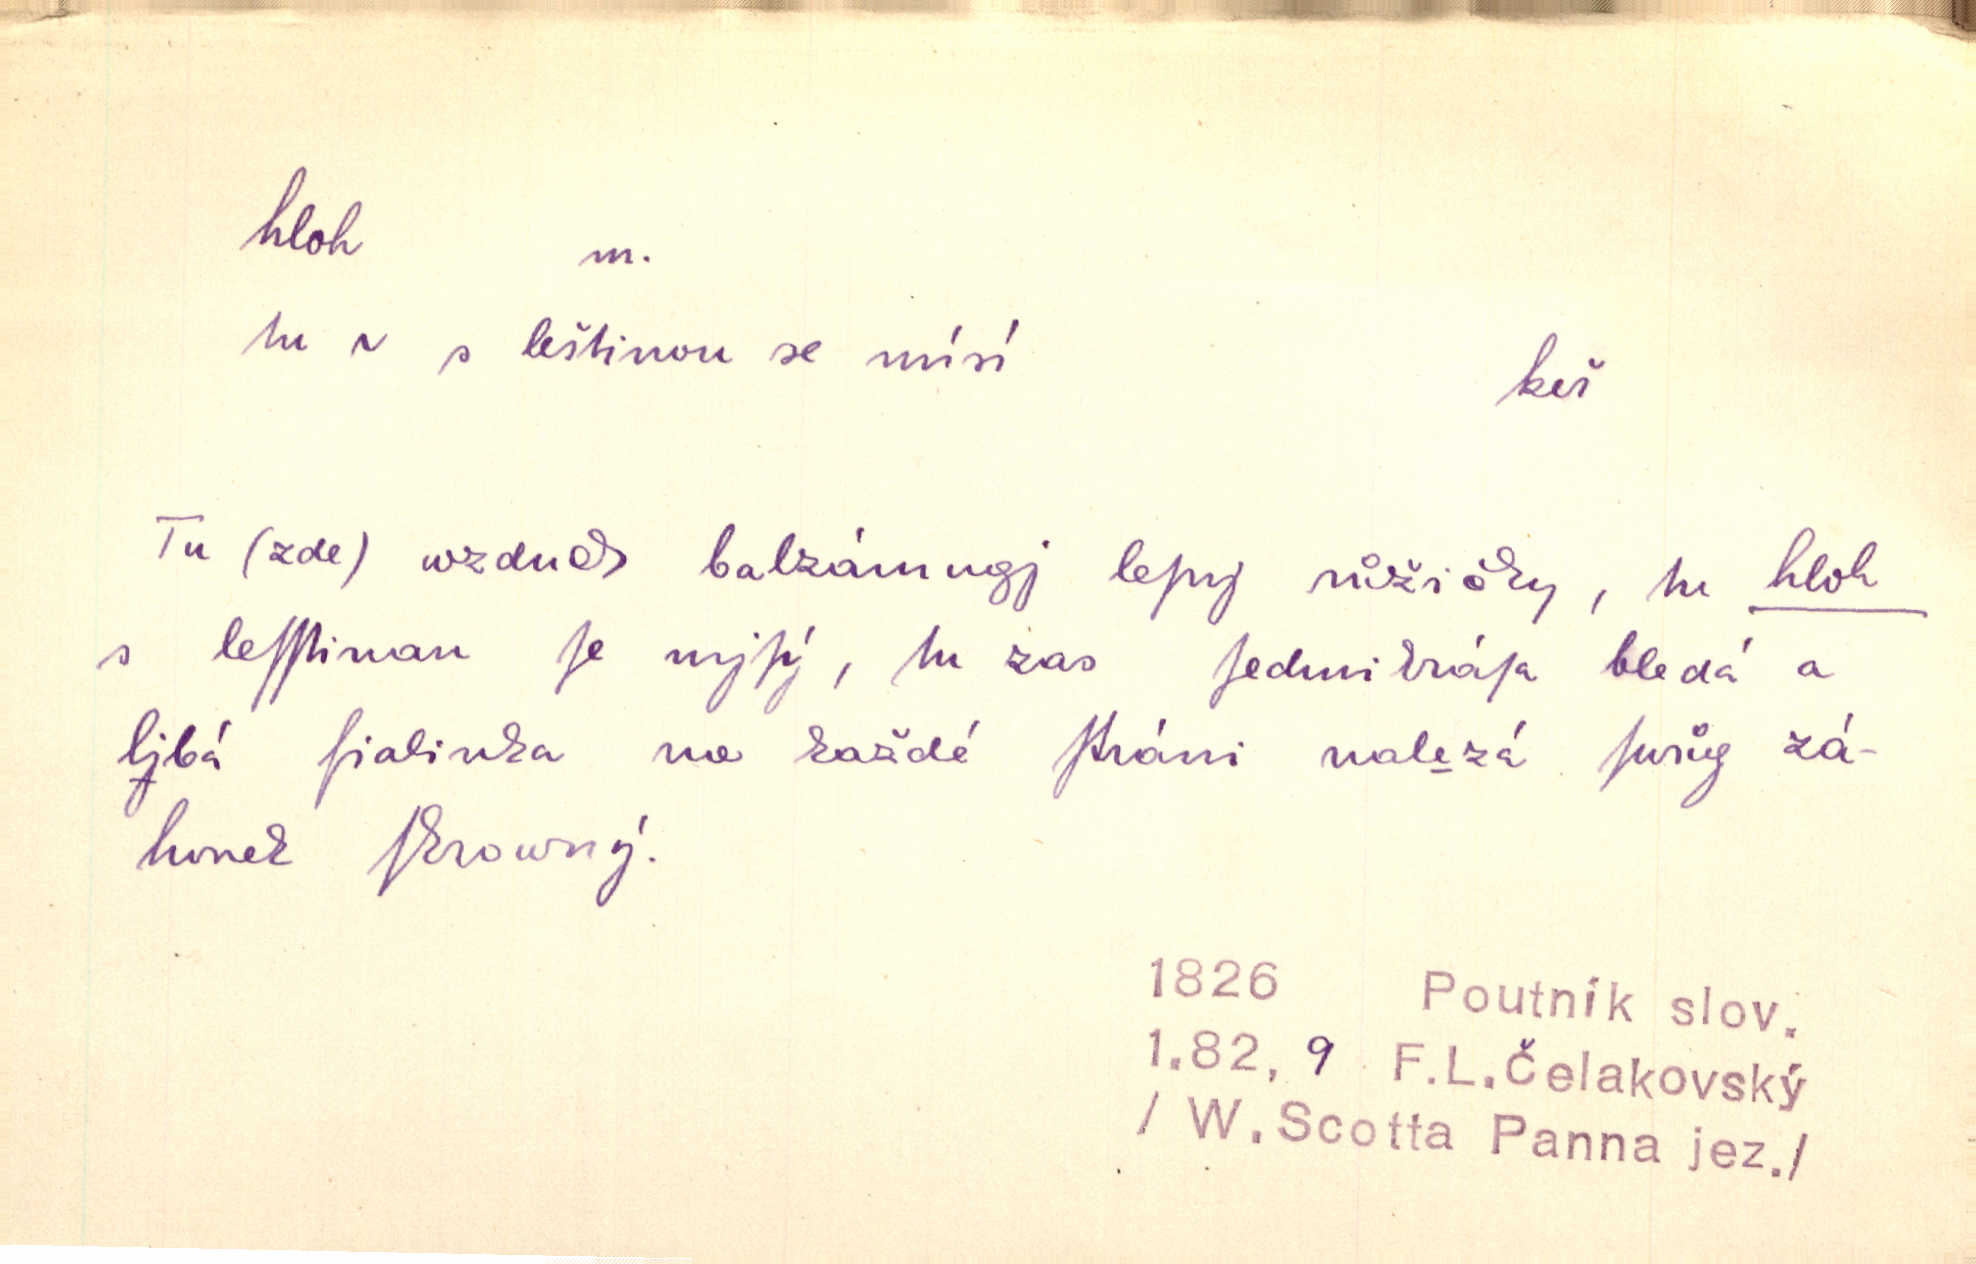 hloh m.
tu ~ s leštinou se mísí
keř
Tu (zde) wzduch balzámugj lepſj růžičky, tu hloh
s leſſtinau ſe mjſý, tu zas ſedmikráſa bledá a
ljbá fialinka na každé ſtráni nalezá ſwůg zá-
honek ſkrowný.
1826 Poutník slov.
1.82, 9 F.L.Čelakovský
/ W.Scotta Panna jez./